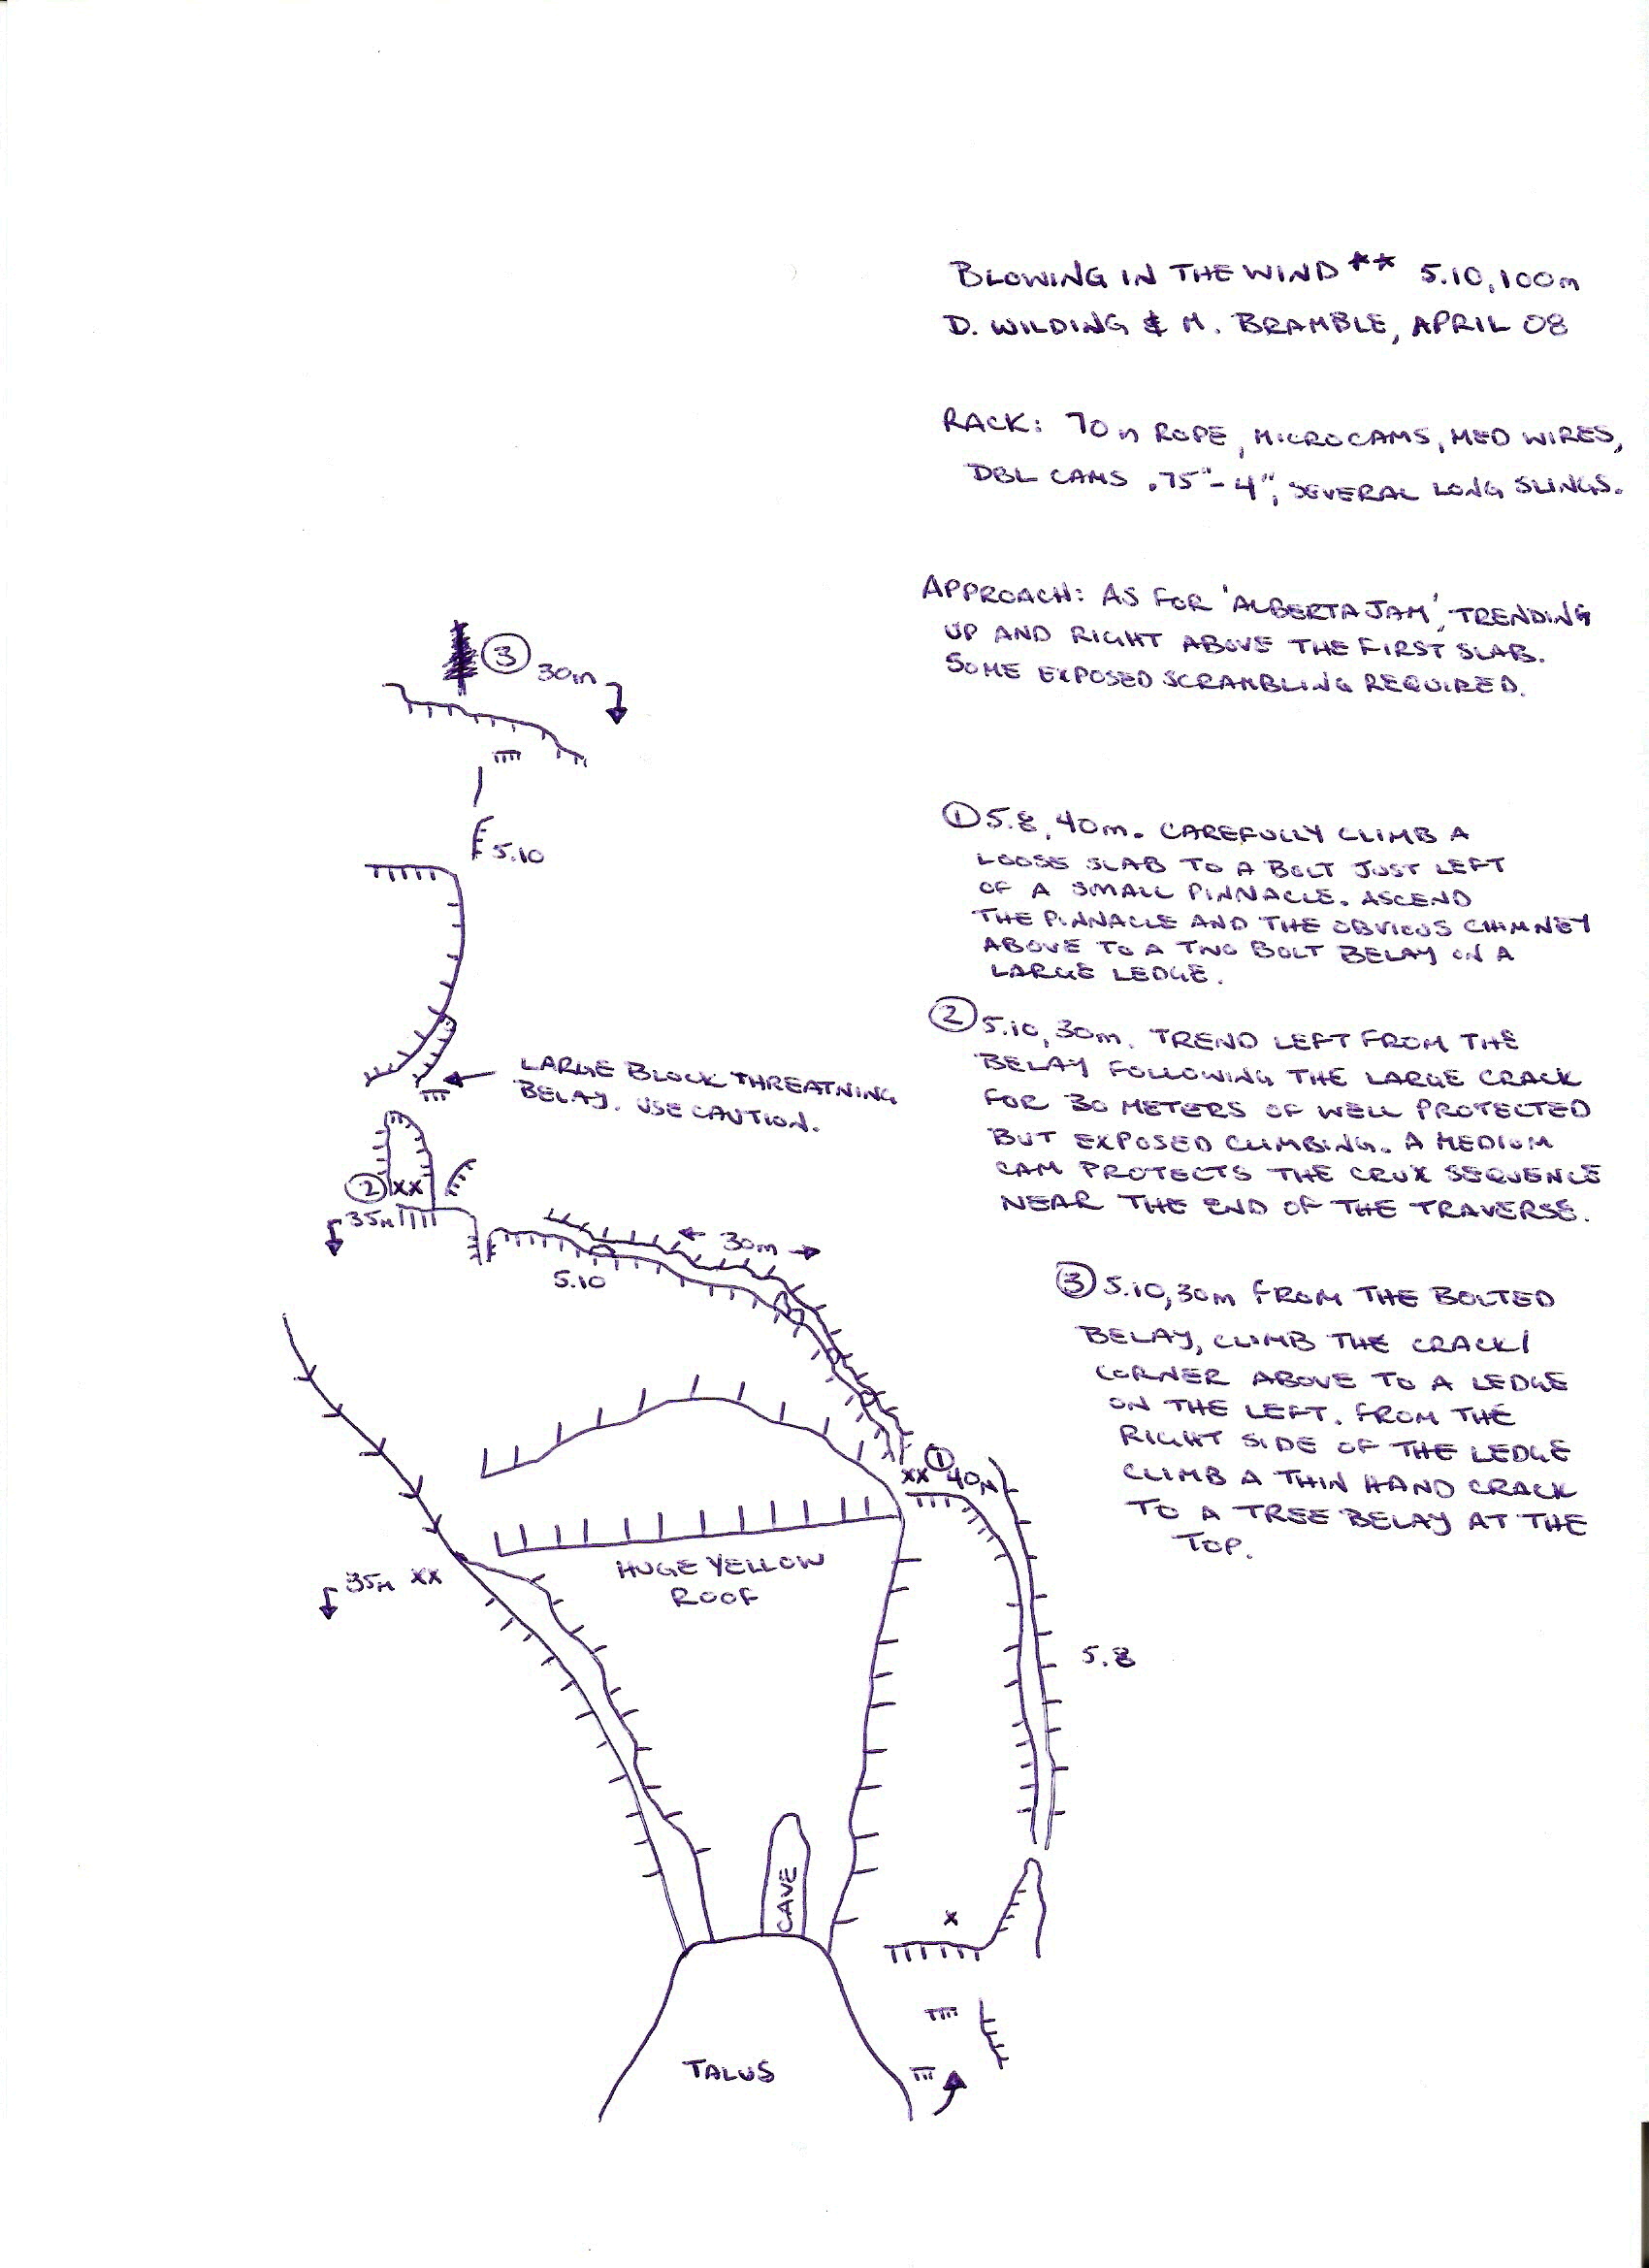 BLOWING IN THE WIND ** 5.10, 100m
D. WILDING & M. BRAMBLE, APRIL 08
RACK: 70m ROPE, MICROCAMS, MED WIRES,
DBL CAMS .75"-4", SEVERAL LONG SLINGS.
APPROACH: AS FOR 'ALBERTA JAM', TRENDING
UP AND RIGHT ABOVE THE FIRST SLAB.
SOME EXPOSED SCRAMBLING REQUIRED.
① 5.8, 40m. CAREFULLY CLIMB A
LOOSE SLAB TO A BOLT JUST LEFT
OF A SMALL PINNACLE. ASCEND
THE PINNACLE AND THE OBVIOUS CHIMNEY
ABOVE TO A TWO BOLT BELAY ON A
LARGE LEDGE.
② 5.10, 30m. TREND LEFT FROM THE
BELAY FOLLOWING THE LARGE CRACK
FOR 30 METERS OF WELL PROTECTED
BUT EXPOSED CLIMBING. A MEDIUM
CAM PROTECTS THE CRUX SEQUENCE
NEAR THE END OF THE TRAVERSE.
③ 5.10, 30m FROM THE BOLTED
BELAY, CLIMB THE CRACK/
CORNER ABOVE TO A LEDGE
ON THE LEFT. FROM THE
RIGHT SIDE OF THE LEDGE
CLIMB A THIN HAND CRACK
TO A TREE BELAY AT THE
TOP.
③ 30m
5.10
LARGE BLOCK THREATNING
BELAY. USE CAUTION.
② XX
35m
30m
5.10
①
XX 40m
HUGE YELLOW
ROOF
35m XX
5.8
CAVE
X
TALUS